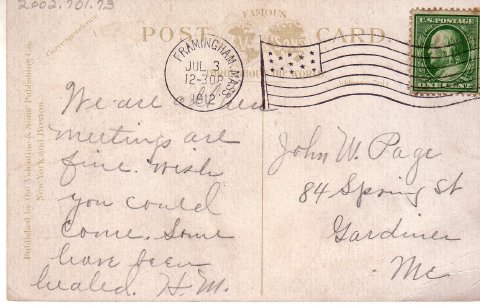 2002.701.73
FAMOUS
POST CARD
Correspondence
Published by the Valentine & Sons Publishing Co.
New York and Boston.
FRAMINGHAM, MASS.
JUL 3
12-30P
1912
U.S. POSTAGE
ONE CENT
We are a
meetings are
fine. wish
you could
come. Some
have been
healed. H.M.
John W. Page
84 Spring St
Gardiner
Me